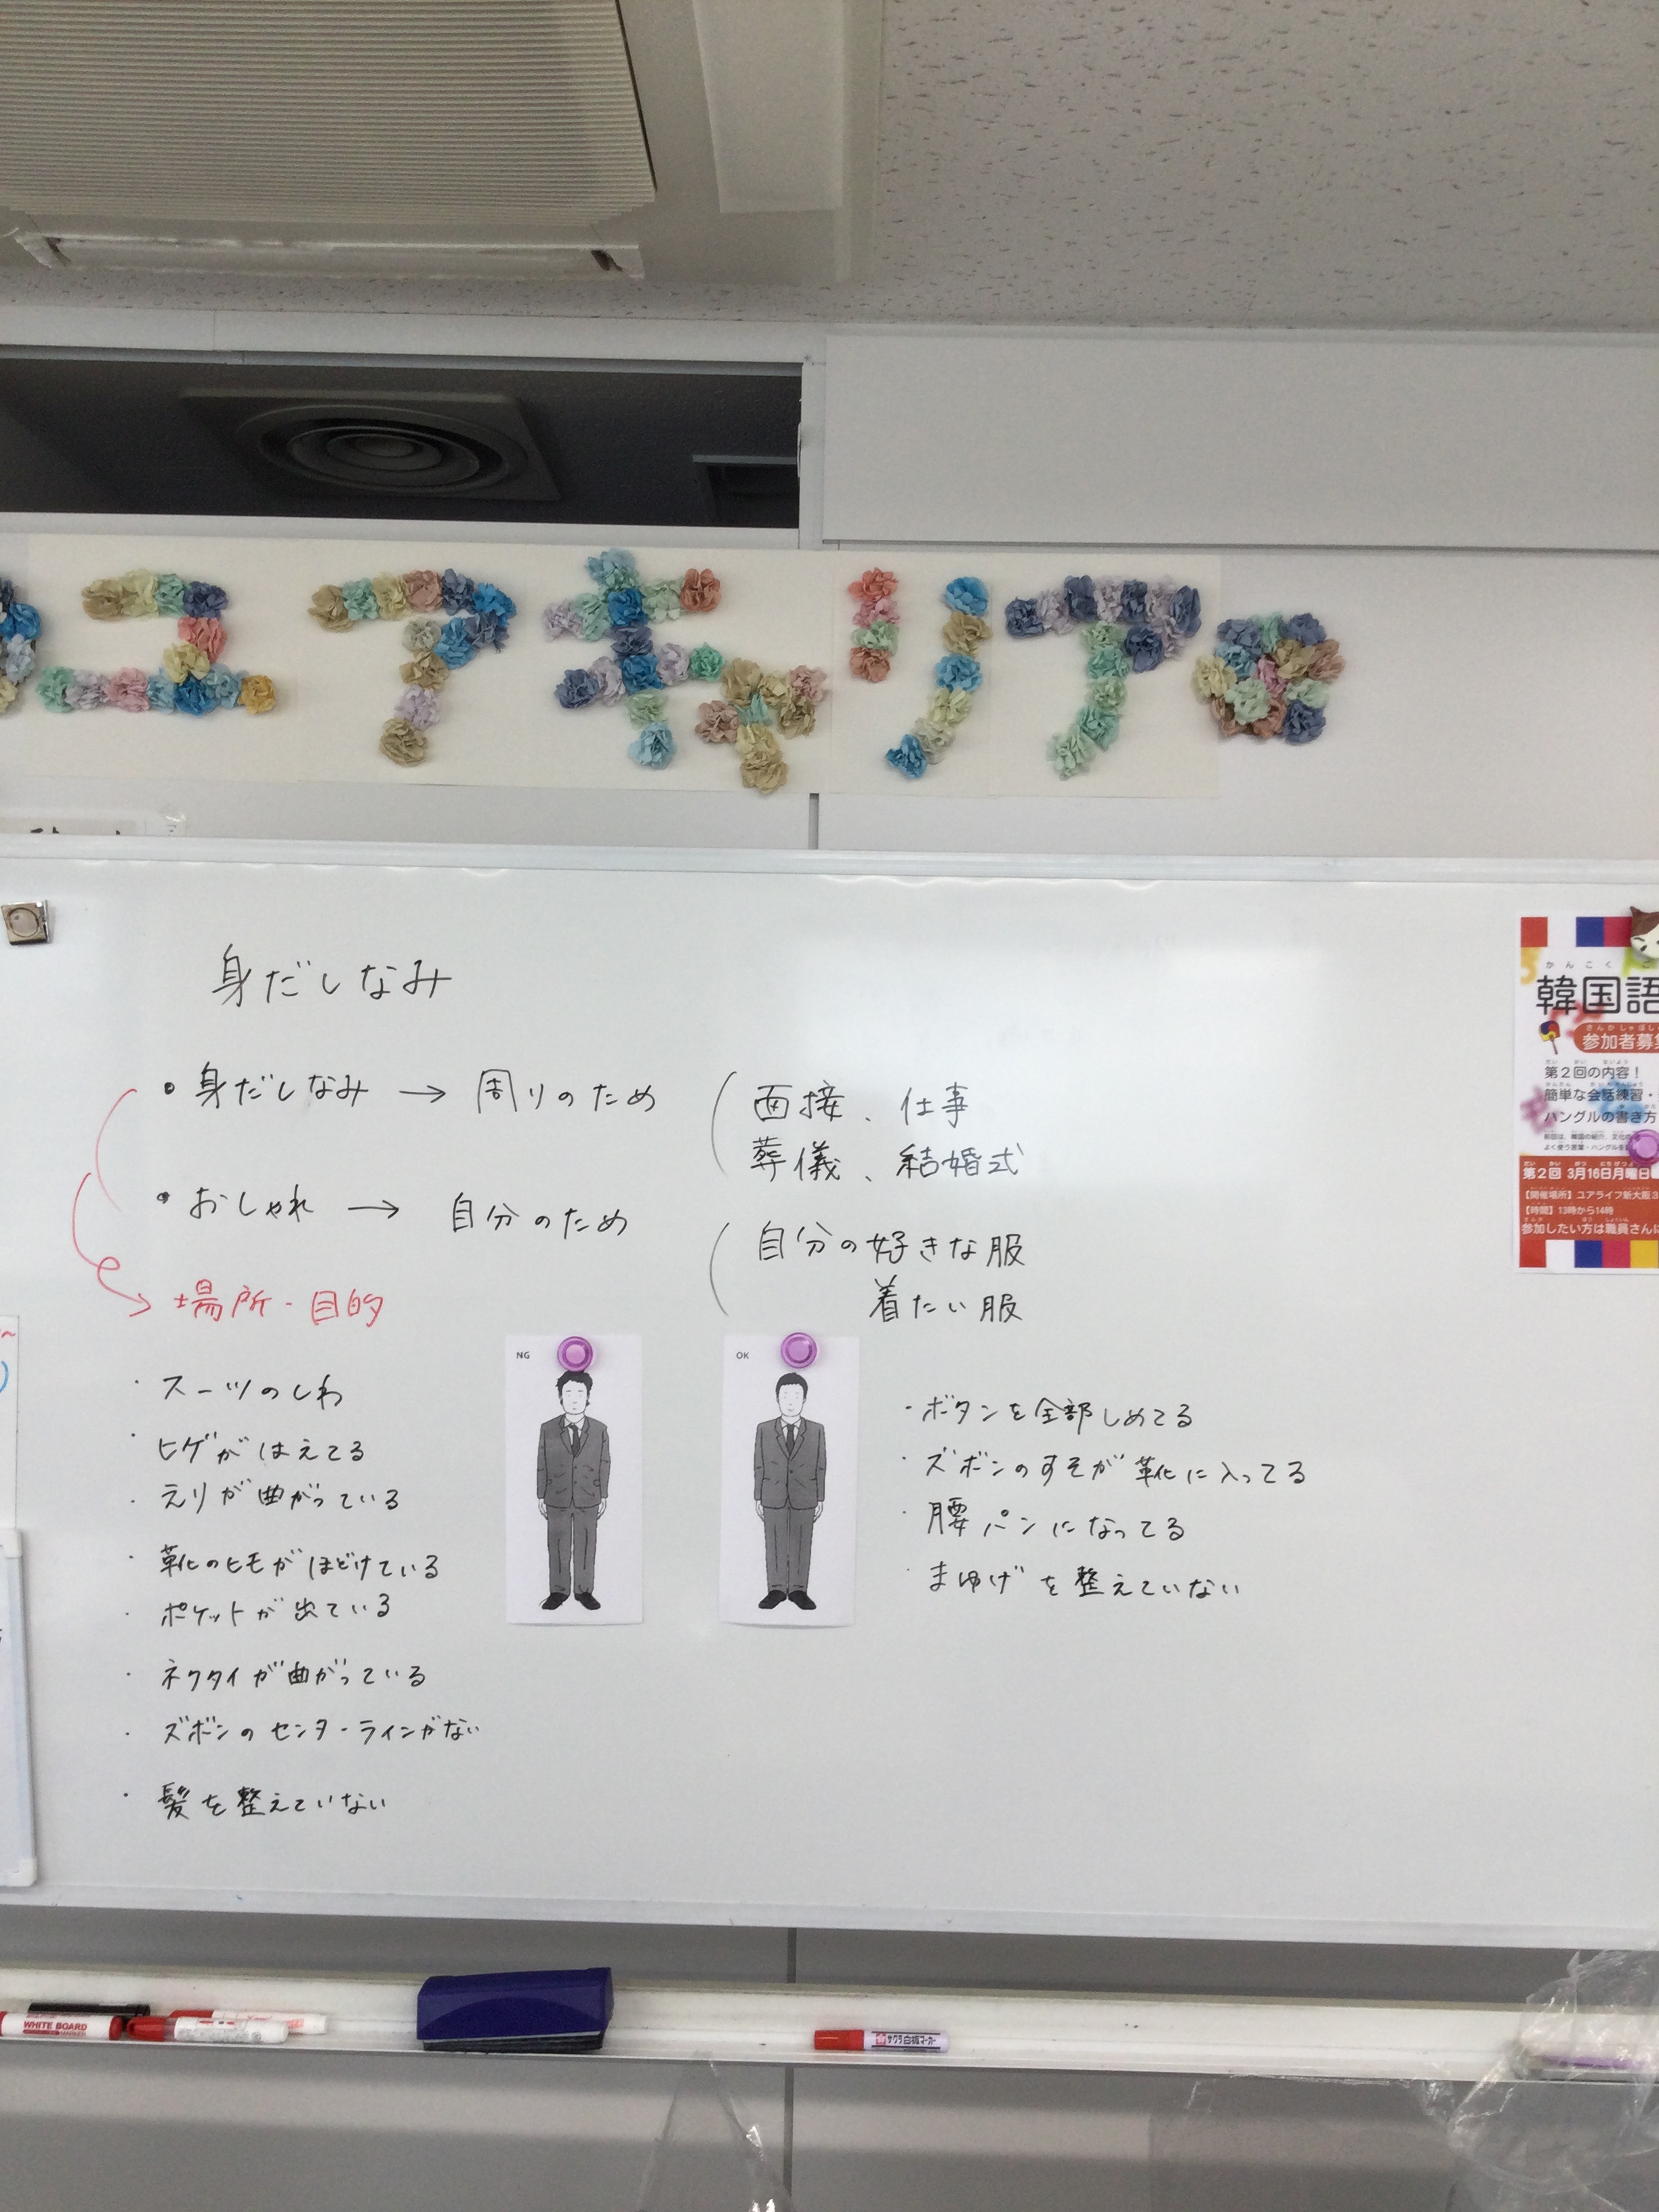 ユアキャリア
身だしなみ
・身だしなみ → 周りのため
面接、仕事
葬儀、結婚式
・おしゃれ → 自分のため
自分の好きな服
着たい服
場所・目的
NG
OK
・スーツのしわ
・ヒゲがはえてる
・えりが曲がっている
・靴のヒモがほどけている
・ポケットが出ている
・ネクタイが曲がっている
・ズボンのセンターラインがない
・髪を整えていない
・ボタンを全部しめてる
・ズボンのすそが靴に入ってる
・腰パンになってる
・まゆげを整えていない
かんこく
韓国語
参加者募
第2回の内容!
簡単な会話練習・
ハングルの書き方
第2回 3月16日月曜日
【開催場所】ユアライフ新大阪
【時間】13時から14時
参加したい方は職員さんに
WHITE BOARD
MARKER
サクラ白板マーカー